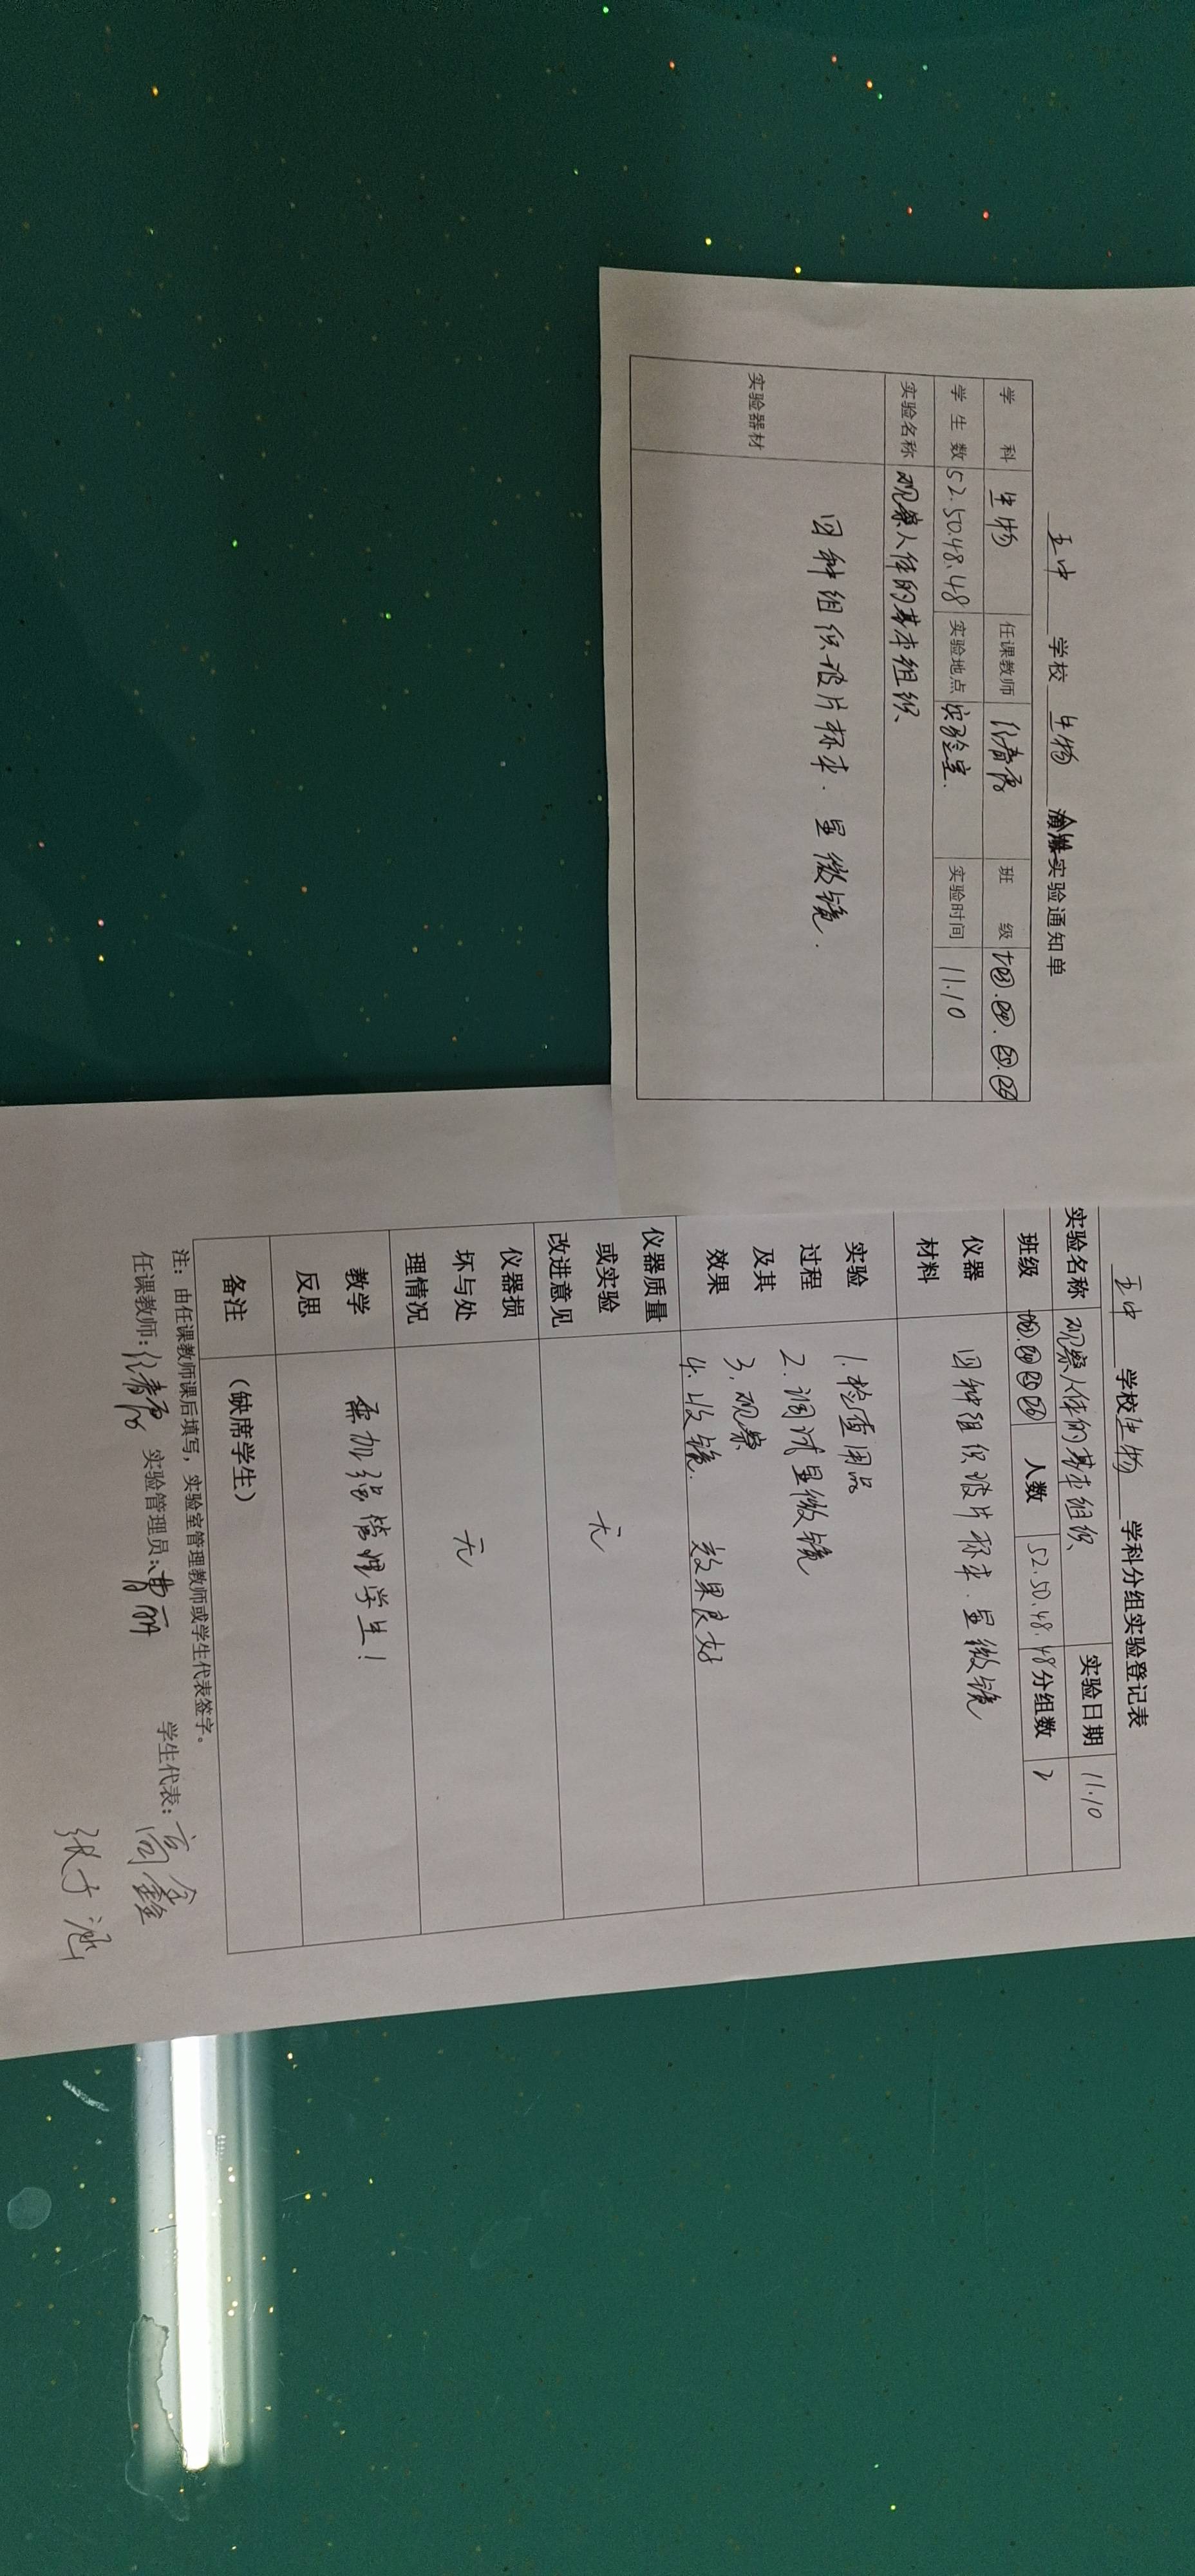 五中 学校 生物 实验通知单
学 科 生物 任课教师 班 级 七㉓.㉔.㉕.㉖
学生数 52.50.48.48 实验地点 实验室. 实验时间 11.10
实验名称 观察人体的基本组织
实验器材 四种组织玻片标本. 显微镜.
五中 学校 生物 学科分组实验登记表
实验名称 观察人体的基本组织 实验日期 11.10
班级 ㉔ ㉕ ㉖ 人数 52.50.48.48 分组数 2
仪器材料 四种组织玻片标本. 显微镜
实验过程及其效果
1.检查用品
2.调试显微镜
3.观察
4.收镜. 效果良好
仪器质量或实验改进意见 无
仪器损坏与处理情况 无
教学反思 要加强管理学生!
备注 (缺席学生)
注: 由任课教师课后填写, 实验室管理教师或学生代表签字。
任课教师: 实验管理员: 曹丽 学生代表: 高鑫
张子涵